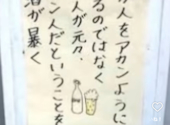 が人をアカンように
るのではなく
人が元々、
ン人だということを
酒が暴く